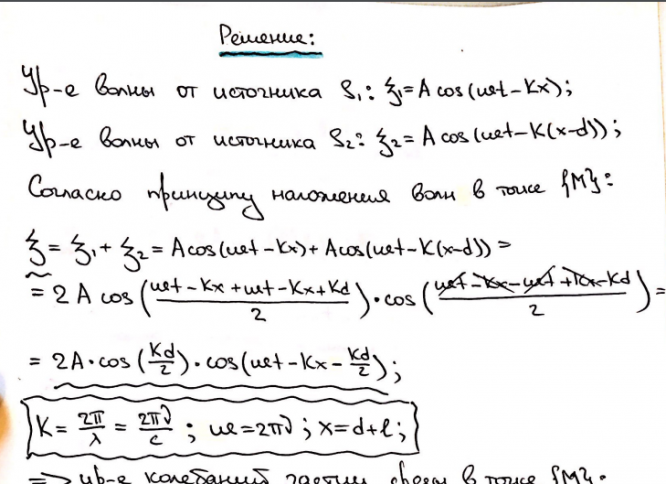 Решение:
Ур-е волны от источника S₁: ξ₁ = A cos(ωt - Kx);
Ур-е волны от источника S₂: ξ₂ = A cos(ωt - K(x-d));
Согласно принципу наложения волн в точке {M}:
ξ = ξ₁ + ξ₂ = A cos(ωt - Kx) + A cos(ωt - K(x-d)) =
= 2A cos((ωt - Kx + ωt - Kx + Kd)/2) · cos((ωt - Kx - ωt + Kx - Kd)/2) =
= 2A · cos(Kd/2) · cos(ωt - Kx - Kd/2);
K = 2π/λ = 2πν/c ; ω = 2πν ; x = d + ℓ;
=> ур-е колебаний частиц среды в точке {M}: